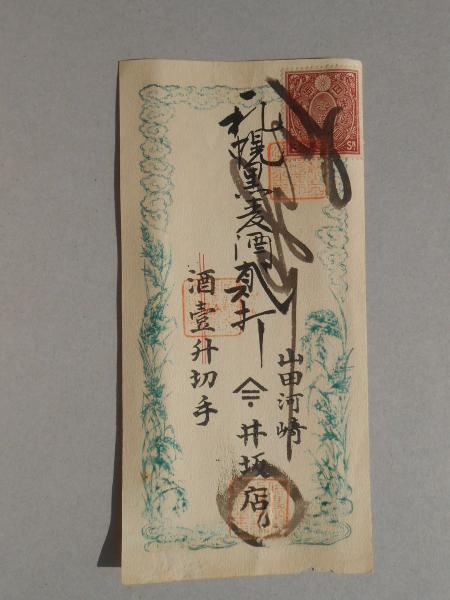 山田河崎
井坂店
札幌黒麦酒貳打
酒壹升切手